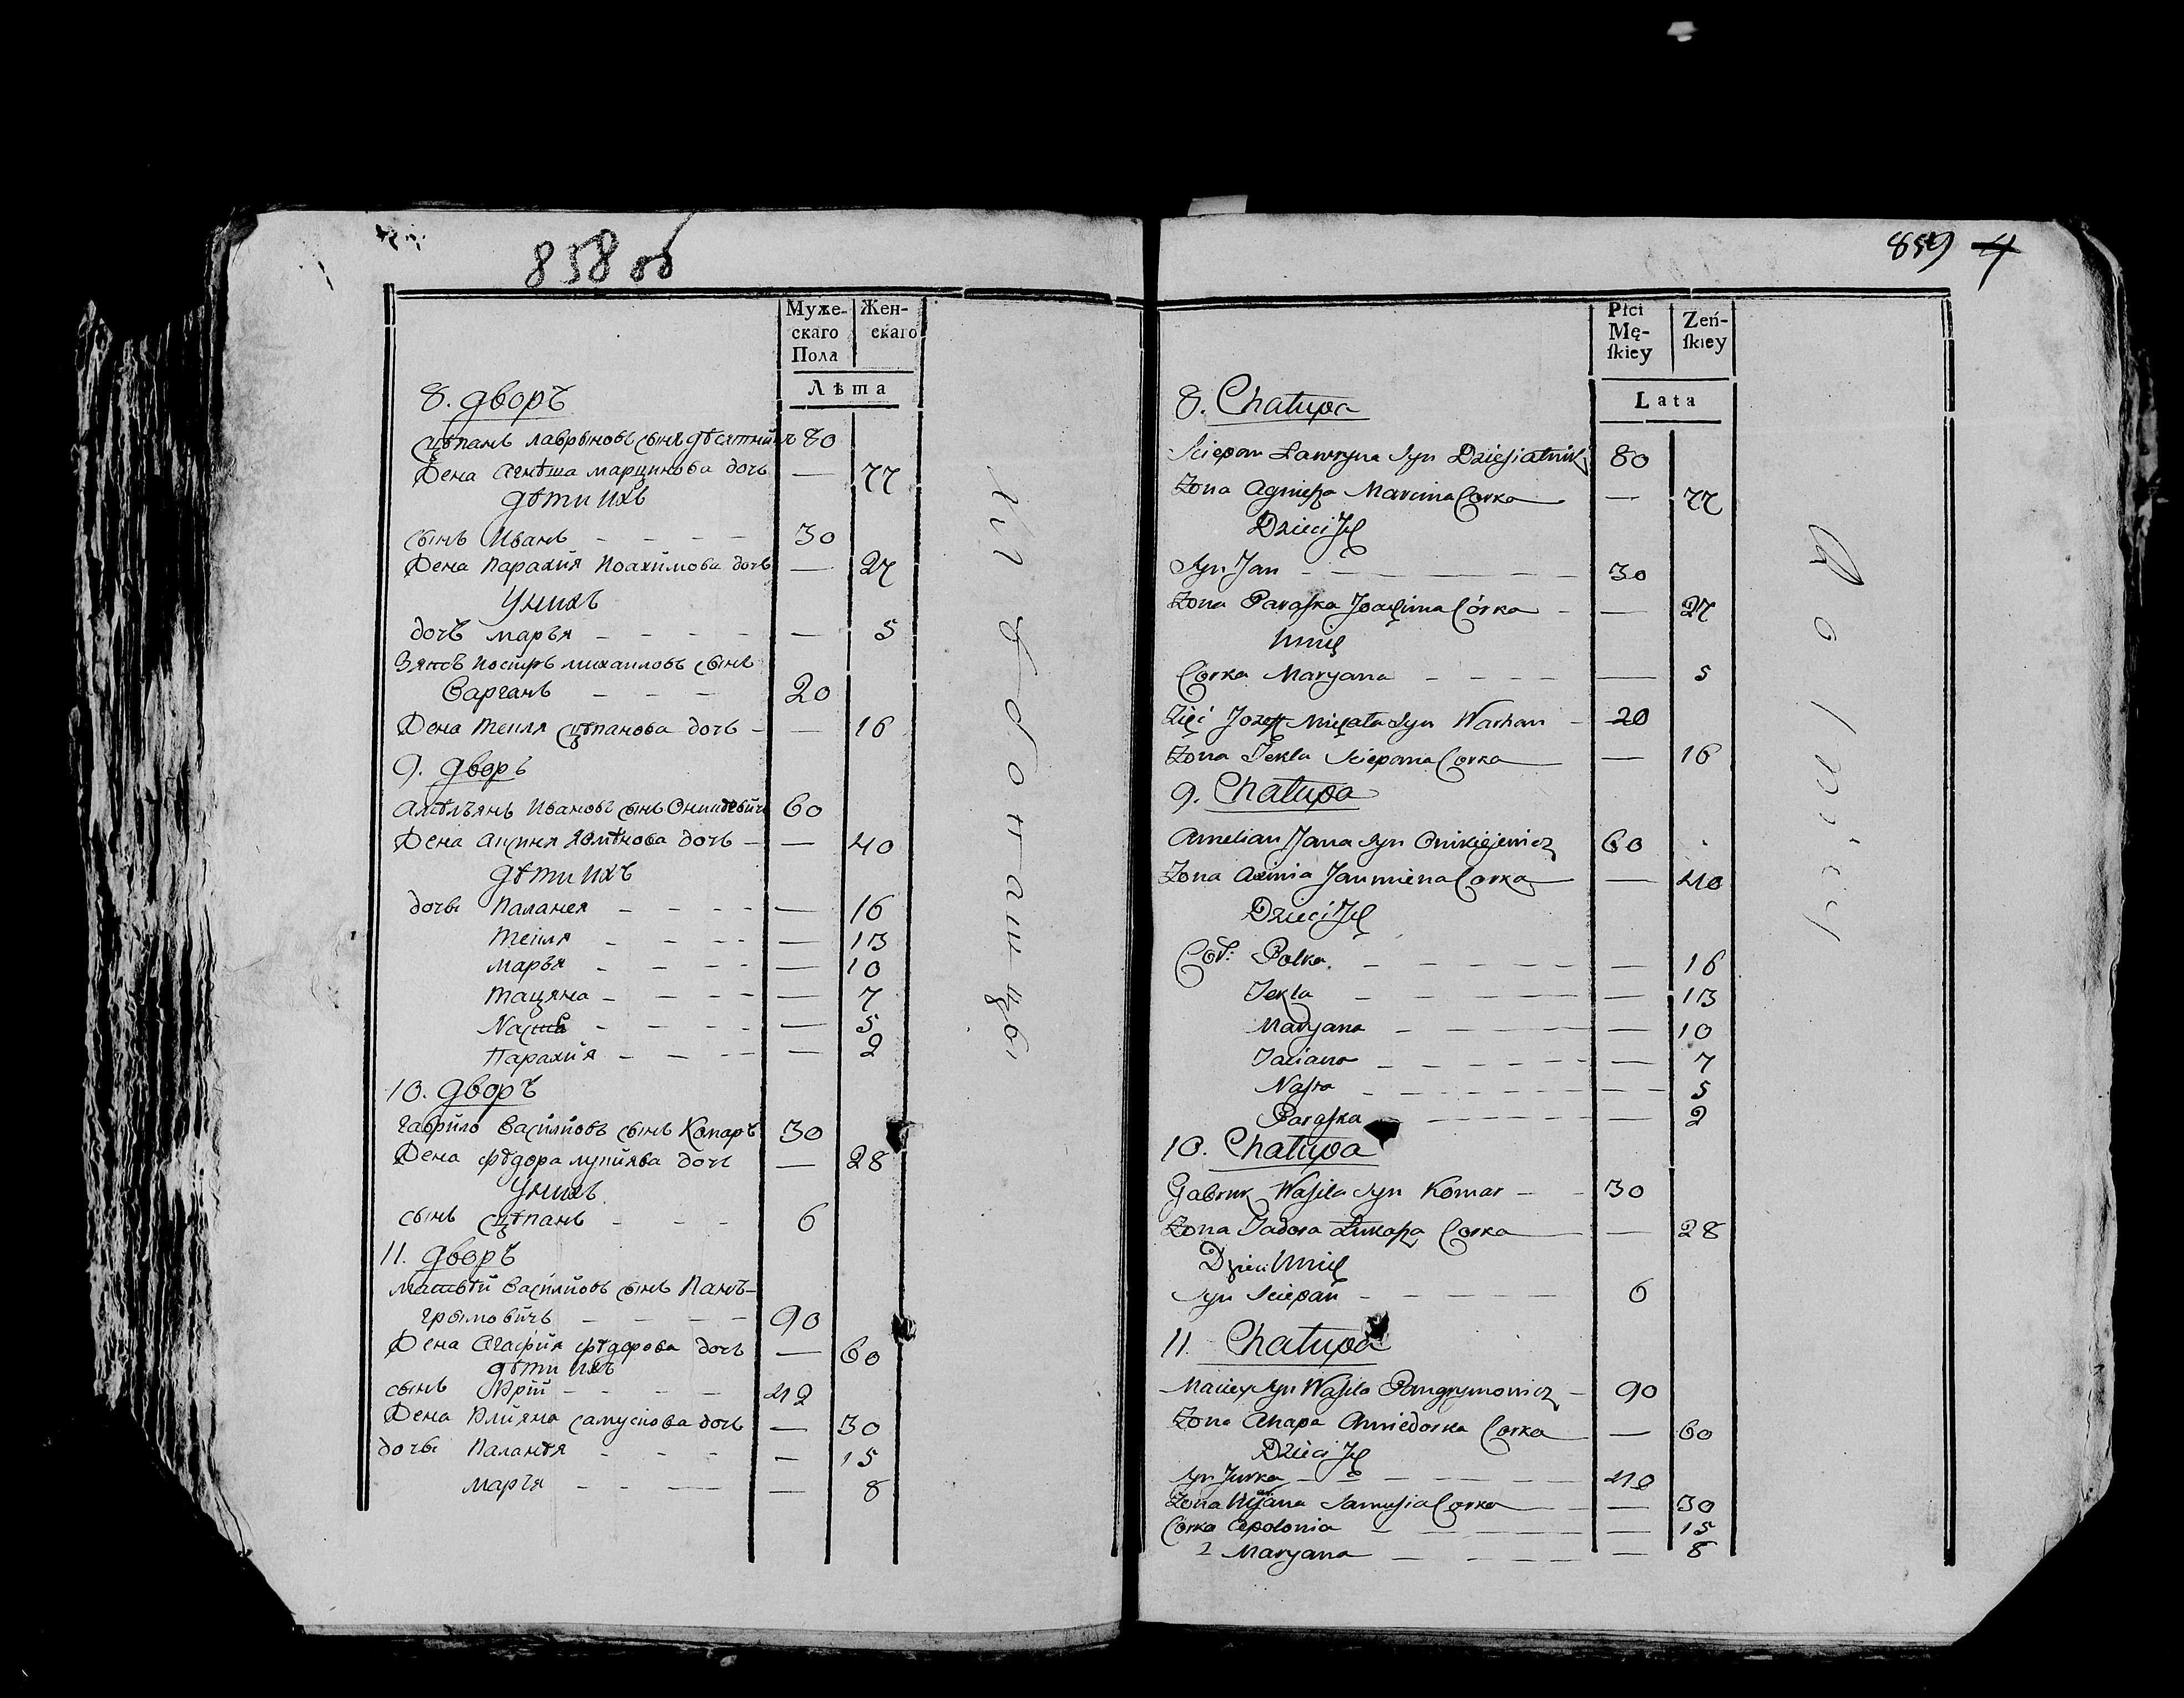 858 об
Муже-
скаго
Пола
Жен-
скаго
Лѣта
8. дворъ
Сцѣпанъ лаврыновъ сынъ дѣсятникъ 80
Жена Агнѣша марцинова дочь — 77
дѣти ихъ
сынъ Иванъ 30
Жена Парахия Иоахимова дочь — 27
У нихъ
дочь маръя — 5
Зять михаиловъ сынъ
Варганъ 20
Жена текля сцѣпанова дочь — 16
9. дворъ
Амѣльянъ Ивановъ сынъ 60
Жена дочь — 40
дѣти ихъ
дочь Паланея — 16
текля — 13
маръя — 10
тацяна — 7
5
Парахия — 2
10. дворъ
гаврило Василиовъ сынъ Комаръ 30
Жена фѣдора дочь — 28
У нихъ
сынъ сцѣпанъ 6
11. дворъ
матвѣй Василиовъ сынъ Панъ-
грымовичъ 90
Жена Агафия фѣдорова дочь — 60
дѣти ихъ
сынъ Юрий 42
Жена Улияна самусиова дочь — 30
дочь Паланѣя — 15
маръя — 8
859 4
Płci
Mę-
ſkiey
Zeń-
ſkiey
Lata
8. Chałupa
Sciepan Ławryna Syn Dziesiatnik 80
Zona Agnieſza Marcina Corka — 77
Dzieci Jch
Syn Jan 30
Zona Paraſka Joachima Córka — 27
U nich
Corka Maryana — 5
Zięć Jozeff Michała Syn Warhan 20
Zona Tekla Sciepana Corka — 16
9. Chałupa
Amelian Jana Syn Onikiejewicz 60
Zona Axinia Corka — 40
Dzieci Jch
Cór: Polka — 16
Tekla — 13
Maryana — 10
Taciana — 7
Naſta — 5
Paraſka — 2
10. Chałupa
Gabruk Waſila Syn Komar 30
Zona Łukaſza Corka — 28
Dzieci U nich
Syn Sciepan 6
11. Chałupa
Maciey Syn Waſila Pangrymowicz 90
Zona Ahapa Corka — 60
Dzieci Jch
Syn Jurka 42
Zona Samuſia Corka — 30
Corka Apolonia — 15
2 Maryana — 8